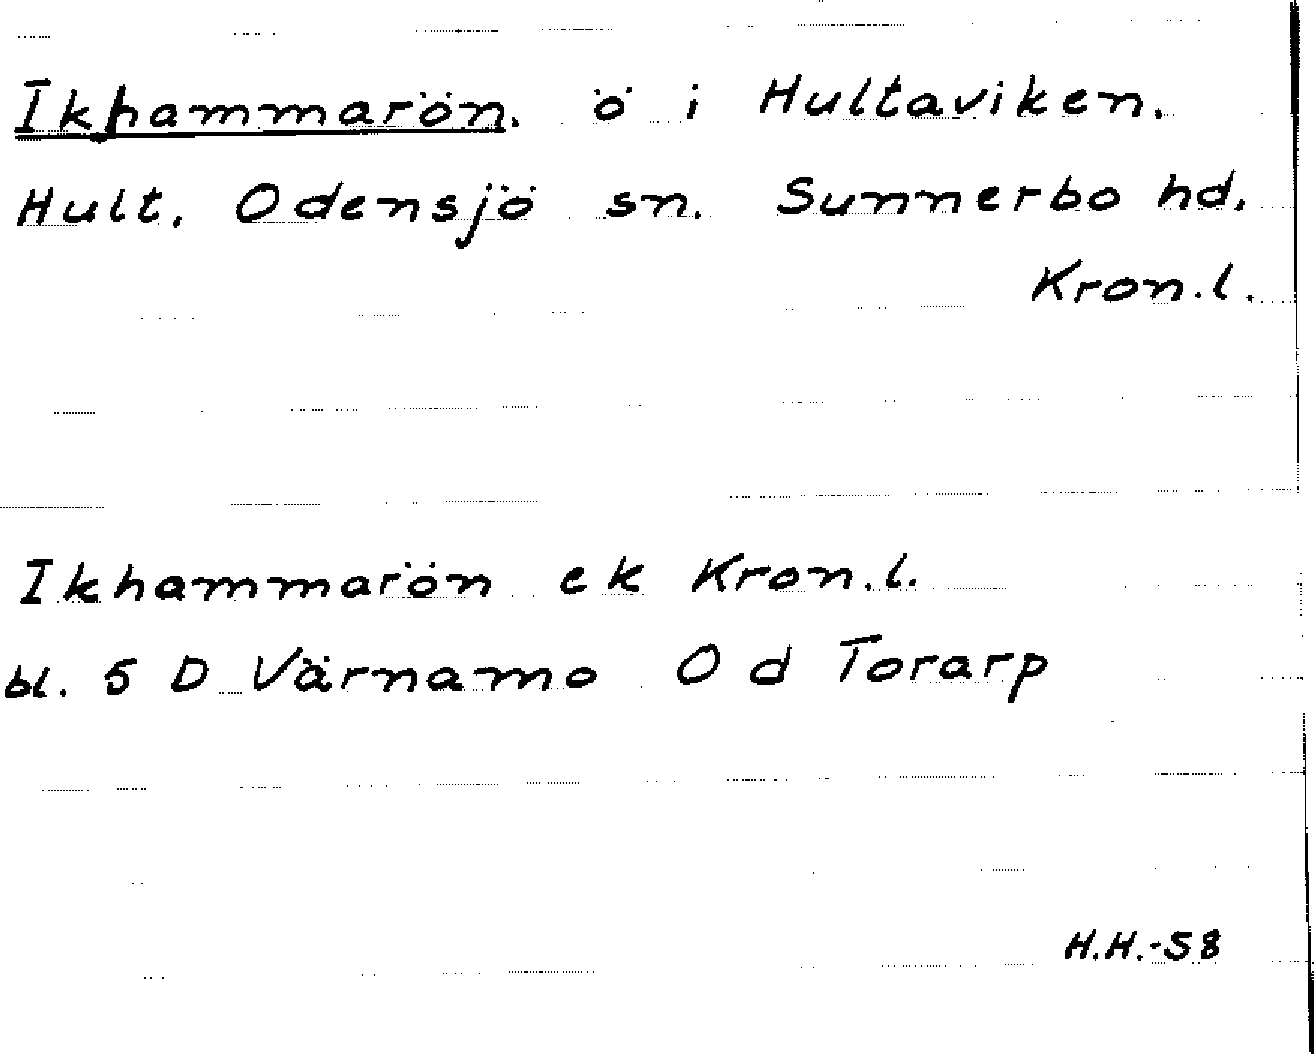 Ikhammarön. ö i Hultaviken.
Hult, Odensjö sn. Sunnerbo hd.
Kron.l.
Ikhammarön ek Kron.l.
bl. 5 D Värnamo Od Torarp
H.H.-58